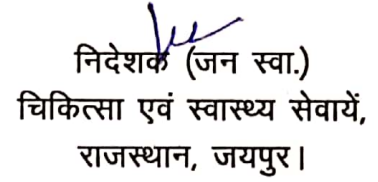 निदेशक (जन स्वा.)
चिकित्सा एवं स्वास्थ्य सेवायें,
राजस्थान, जयपुर।